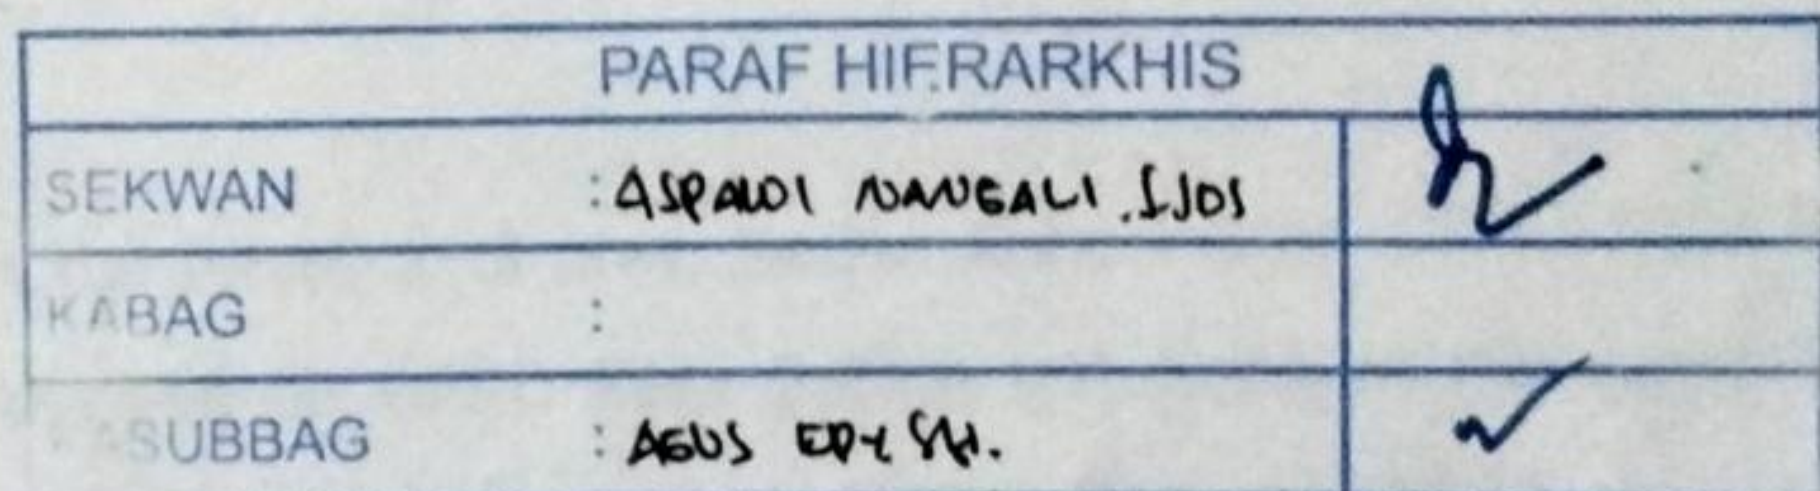 PARAF HIERARKHIS
SEKWAN : ASPALDI NANGALI, S.SOS
KABAG :
KASUBBAG : AGUS EDY SH.